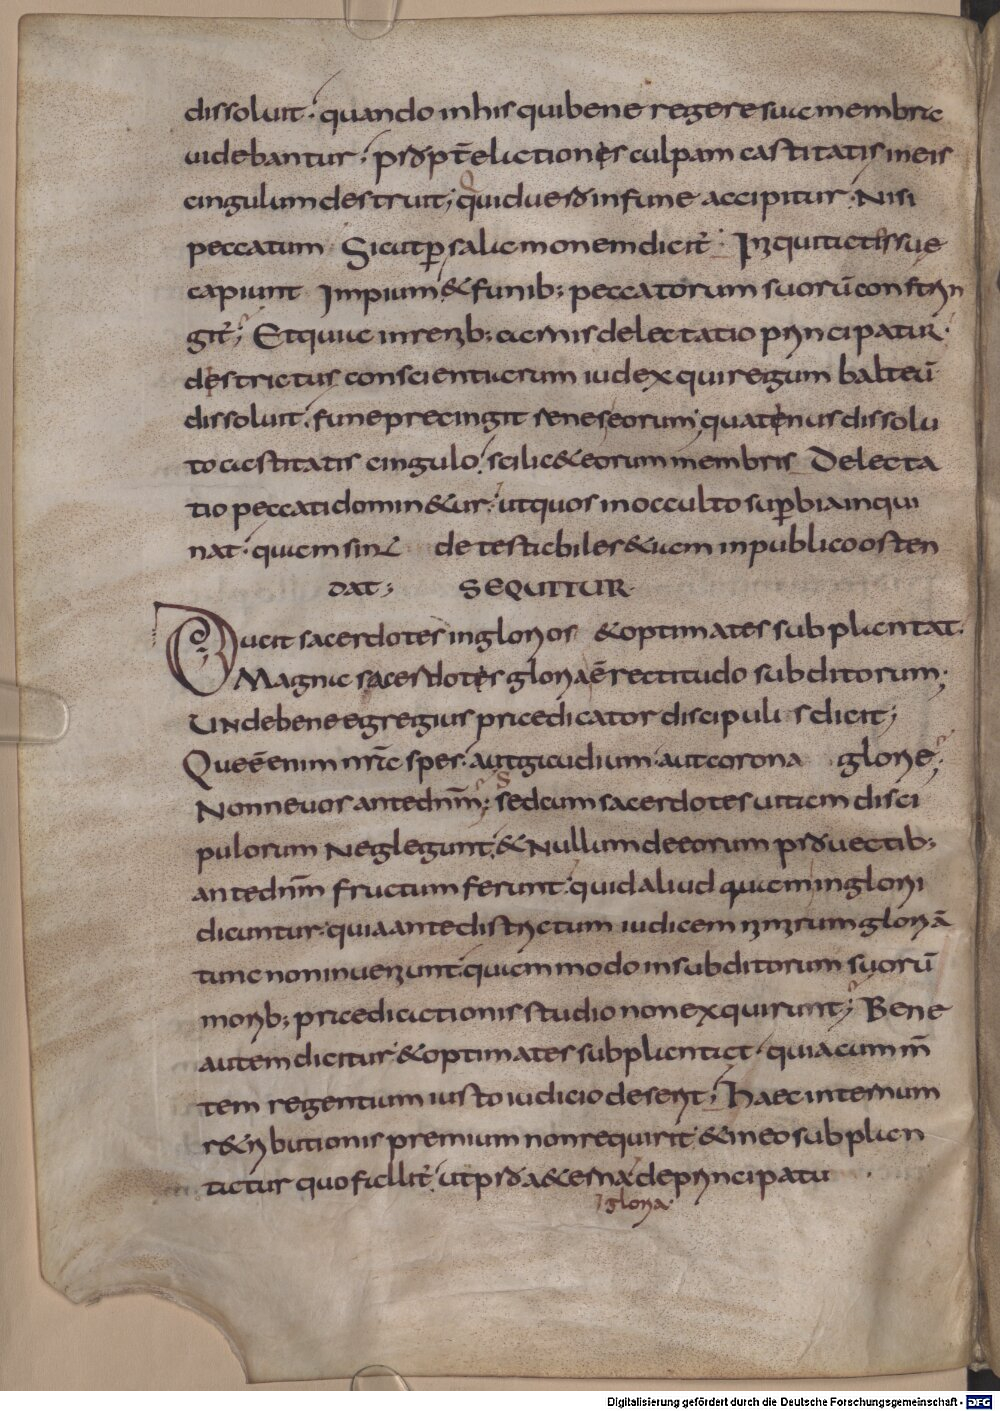 dissoluit· quando inhis quibene regere sua membra
uidebantur· propt̄ elationes culpam castitatis ineis
cingulum destruit; quid uero infune accipitur· Nisi
peccatum Sicut ꝑ salamonem dicit̄· Iniquitates suę
capiunt Impium, & funib; peccatorum suorū constrin
git̄; Et quia in renib; carnis delectatio principatur·
destrictus conscientiarum iudex qui regum balteū
dissoluit· fune precingit renes eorum, quatenus dissolu
to castitatis cingulo, scilic& eorum membris Delecta
tio peccati domin&ur· ut quos in occulto suꝑbia inqui
nat· quam sint detestabiles &iam inpublico osten
dat; SEQUITUR
Ducit sacerdotes inglorios &optimates subplantat·
Magna sacerdotes gloria ē rectitudo subditorum·
Unde bene egregius praedicator discipulis dicit;
Quae ē enim nr̄a spes· aut gaudium· aut corona glorię;
Nonne uos ante dnm̄; sed cum sacerdotes uitam disci
pulorum Neglegunt, & Nullum deeorum prouectib;
ante dnm̄ fructum ferunt· quid aliud quam inglorii
dicuntur· quia ante districtum iudicem inizrum gloriā
tunc non inueniunt· quam modo in subditorum suorū
morib; praedicationis studio non exquirunt; Bene
autem dicitur &optimates subplantat· quia cum m̄
tem regentium iusto iudicio deserit; Haec internum
r&ributionis premium non requirit &ineo subplan
tatur quo fallit̄· ut pro a&erna de principatu
gloria·